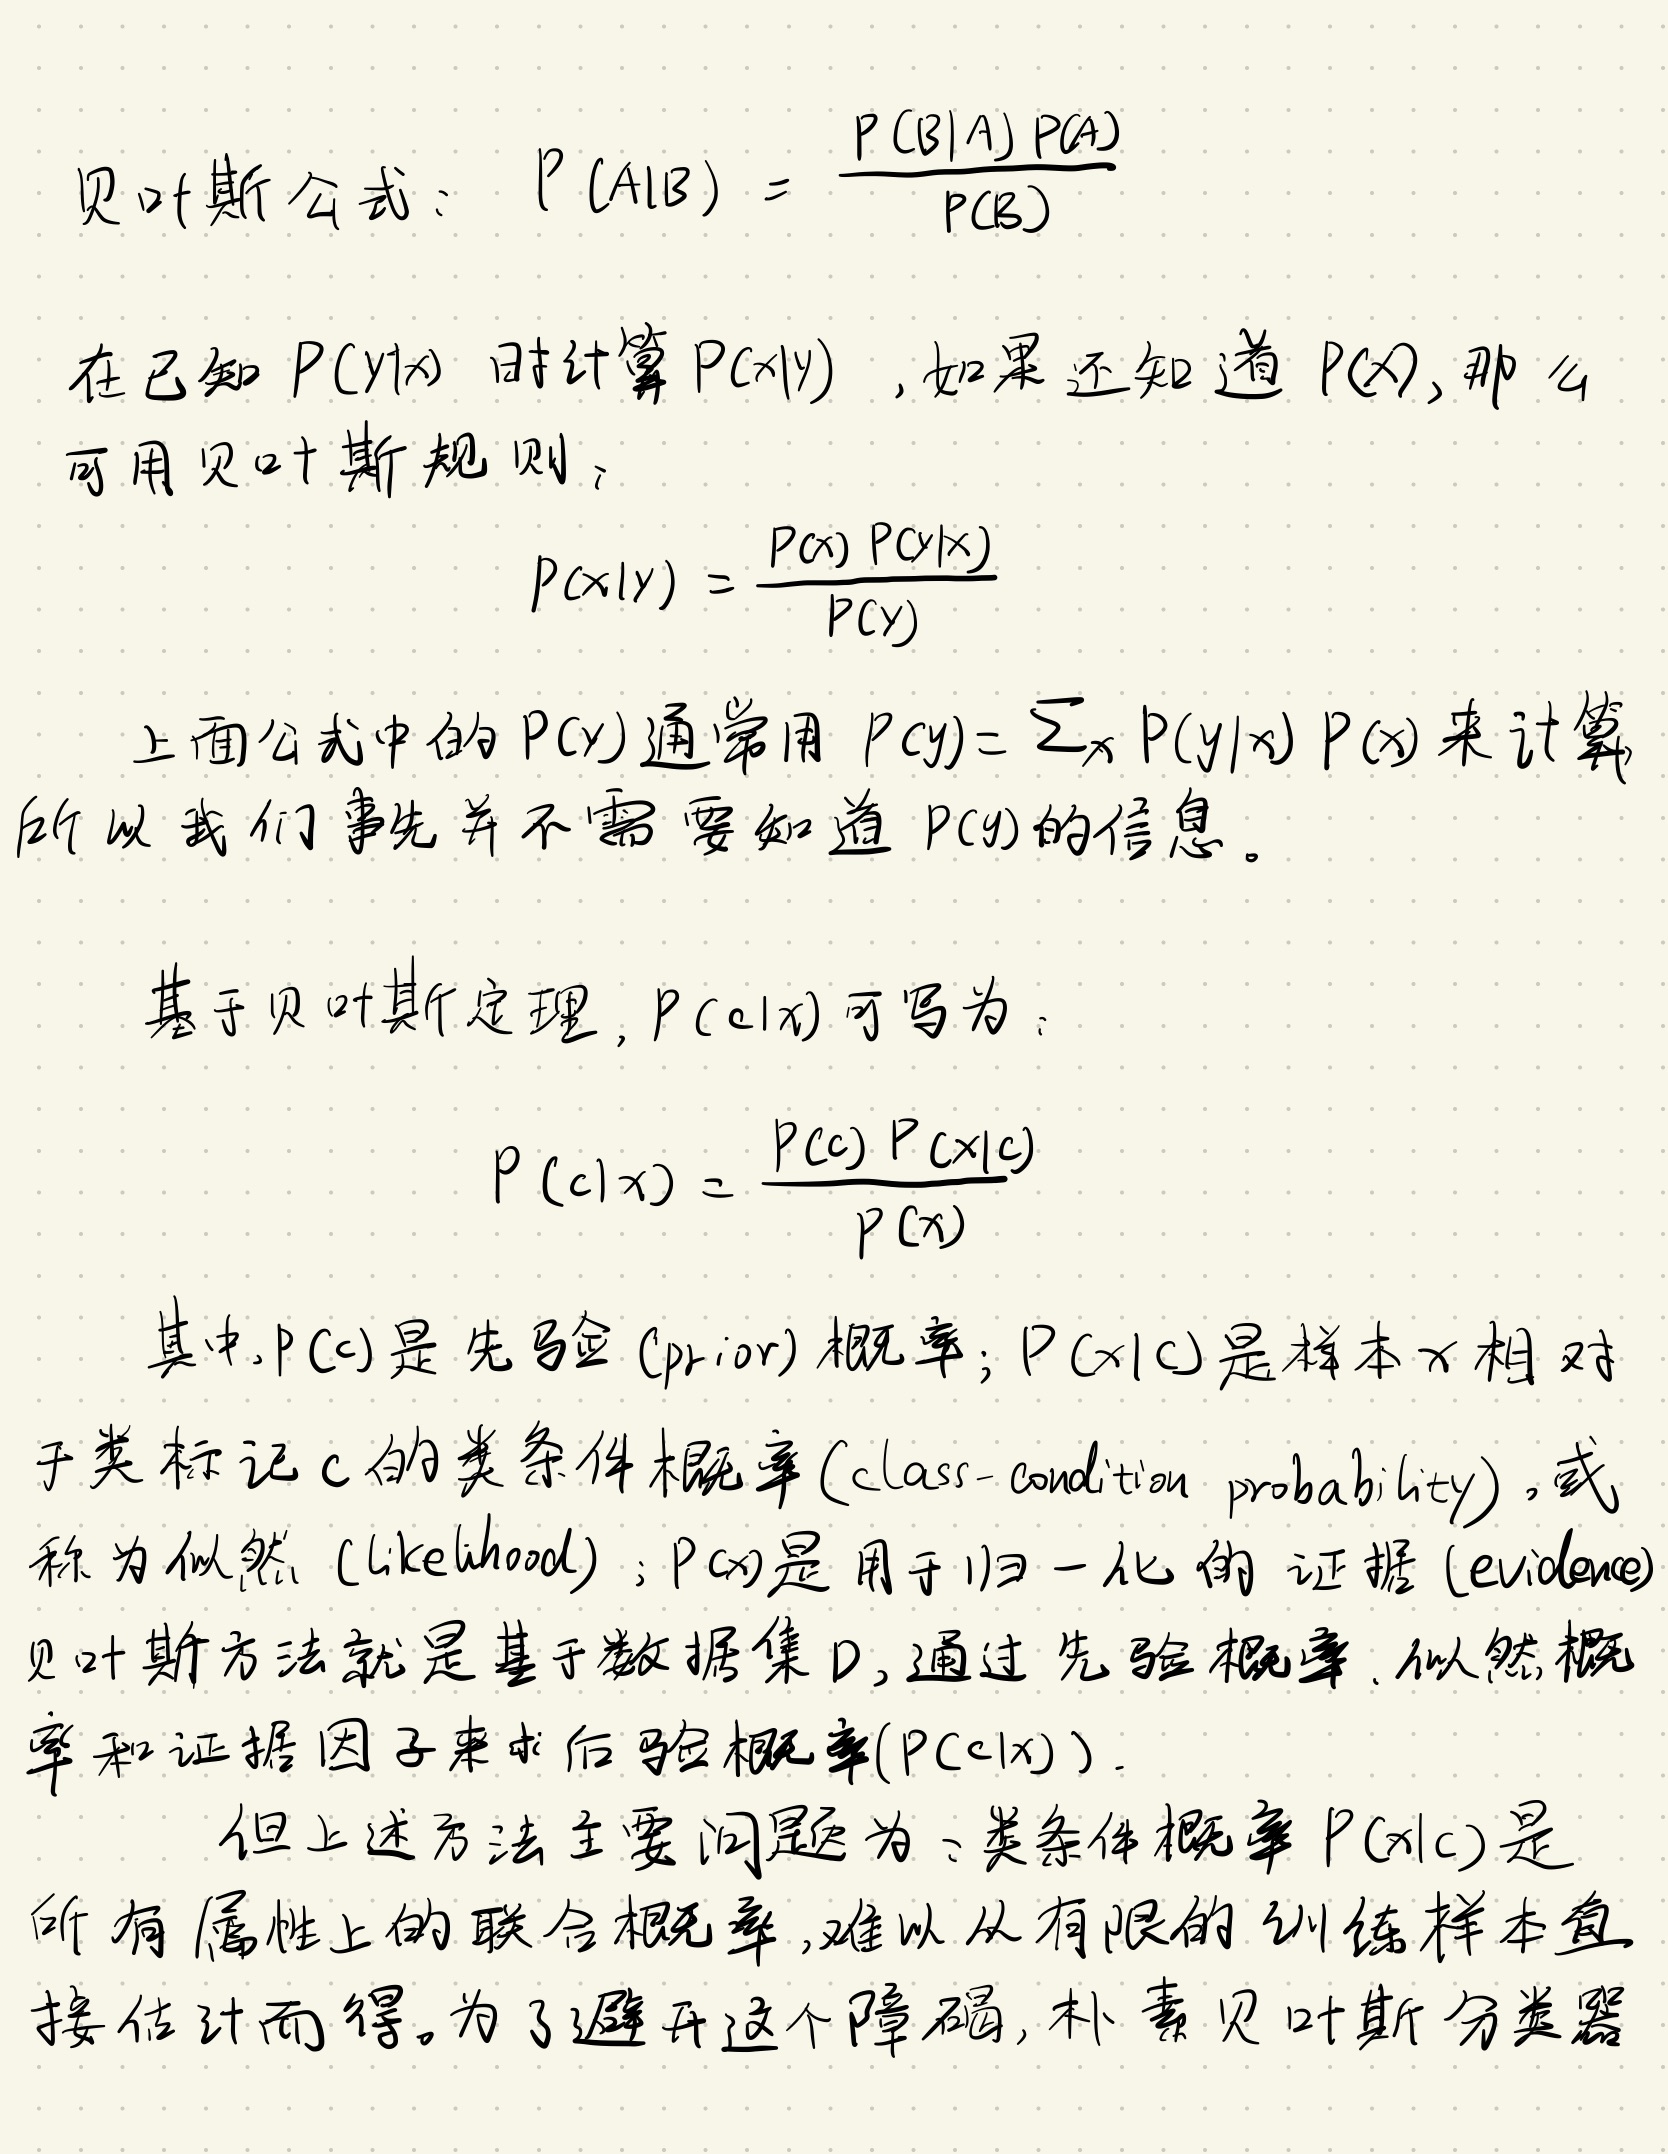 贝叶斯公式: P(A|B) = P(B|A) P(A) / P(B)
在已知 P(y|x) 时计算 P(x|y) ,如果还知道 P(x),那么
可用贝叶斯规则:
P(x|y) = P(x) P(y|x) / P(y)
上面公式中的P(y)通常用 P(y)= ∑x P(y|x) P(x) 来计算,
所以我们事先并不需要知道 P(y)的信息。
基于贝叶斯定理,P(c|x)可写为:
P(c|x) = P(c) P(x|c) / P(x)
其中,P(c)是先验(prior)概率;P(x|c)是样本x相对
于类标记c的类条件概率(class-condition probability),或
称为似然 (likelihood);P(x)是用于归一化的证据(evidence)
贝叶斯方法就是基于数据集D,通过先验概率、似然概
率和证据因子来求后验概率(P(c|x)).
但上述方法主要问题为:类条件概率P(x|c)是
所有属性上的联合概率,难以从有限的训练样本直
接估计而得。为了避开这个障碍,朴素贝叶斯分类器